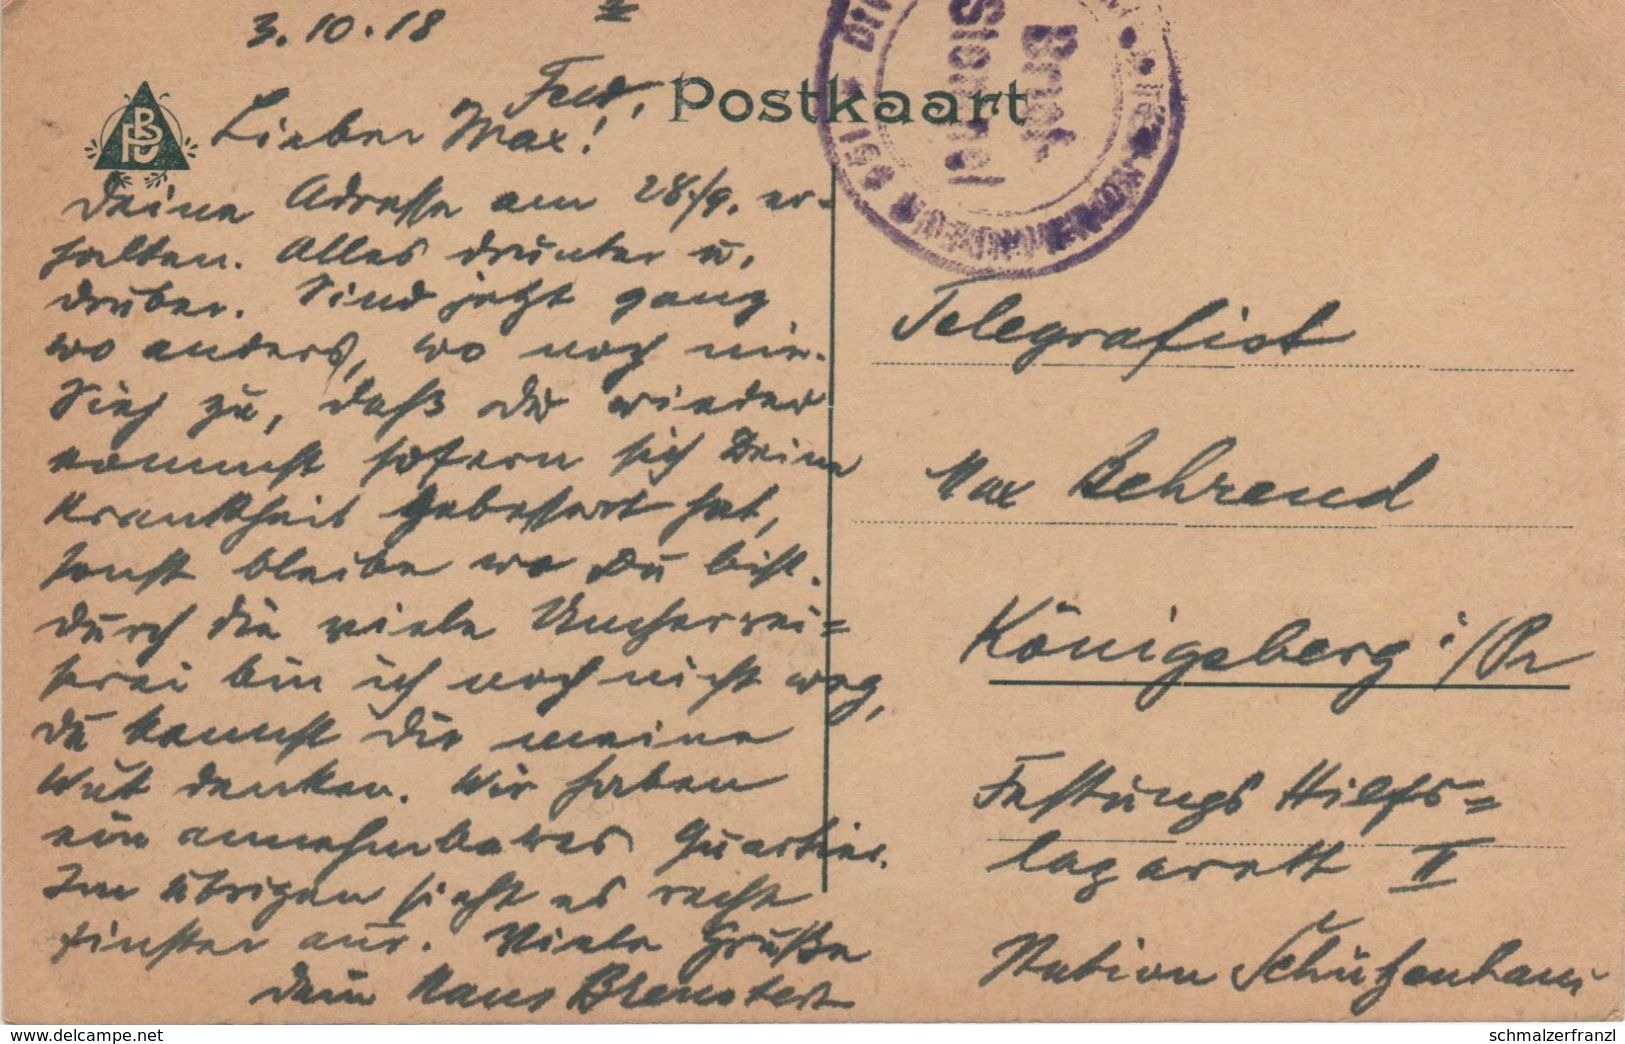 3.10.18
Feld,
Postkaart
FBP
Lieber Max!
Deine Adresse am 28./9. er-
halten. Alles drunter u.
drüber. Sind jetzt ganz
wo anders, wo noch nie.
Sieh zu, daß du wieder
kommst sofern sich Deine
Krankheit gebessert hat,
sonst bleibe wo Du bist.
Durch die viele
bin ich noch nicht weg,
Du kannst Dir meine
Wut denken. Wir haben
ein annehmbares Quartier.
Im übrigen sieht es recht
finster aus. Viele Grüße
Dein Hans
Brief-
Stempel
Telegrafist
Max Behrend
Königsberg i/Pr
Festungs Hilfs=
lazarett II
Station Schützenhaus
schmalzerfranzl
www.delcampe.net